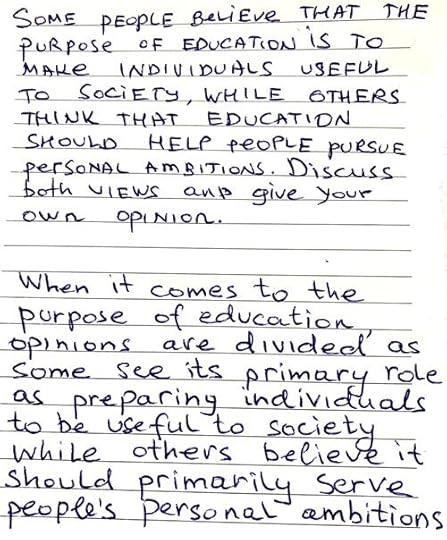 SOME PEOPLE BELIEVE THAT THE
PURPOSE OF EDUCATION IS TO
MAKE INDIVIDUALS USEFUL
TO SOCIETY, WHILE OTHERS
THINK THAT EDUCATION
SHOULD HELP PEOPLE PURSUE
PERSONAL AMBITIONS. Discuss
both VIEWS AND give your
own OPINION.
When it comes to the
purpose of education,
opinions are divided as
some see its primary role
as preparing individuals
to be useful to society
while others believe it
should primarily serve
people's personal ambitions